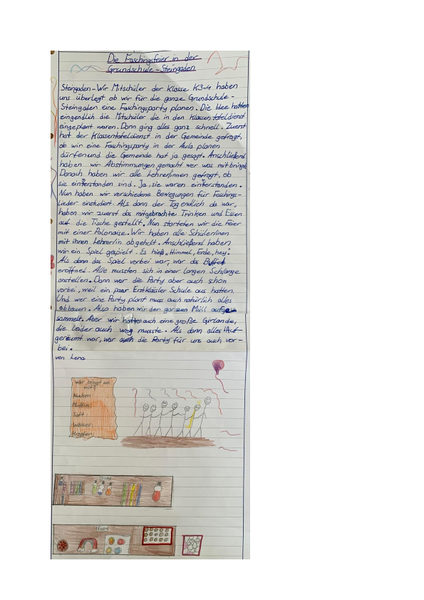 Die Faschingsfeier in der
Grundschule-Steingaden
Steingaden-Wir Mitschüler der Klasse K3-4 haben
uns überlegt ob wir für die ganze Grundschule-
Steingaden eine Faschingsparty planen. Die Idee hatten
eingendlich die Mitschüler die in den Klassentafeldienst
eingeplant waren. Dann ging alles ganz schnell. Zuerst
hat der Klassentafeldienst in der Gemeinde gefragt,
ob wir eine Faschingsparty in der Aula planen
dürfen und die Gemeinde hat ja gesagt. Anschließend
haben wir Abstimmungen gemacht wer was mitbringt.
Danach haben wir alle Lehrerinnen gefragt, ob
sie einverstanden sind. Ja, sie waren einverstanden.
Nun haben wir verschiedene Bewegungen für Faschings-
Lieder einstudiert. Als dann der Tag endlich da war,
haben wir zuerst das mitgebrachte Trinken und Essen
auf die Tische gestellt. Nun starteten wir die Feier
mit einer Polonaise. Wir haben alle Schülerinnen
mit ihren Lehrerin abgeholt. Anschließend haben
wir ein Spiel gespielt. Es hieß, Himmel, Erde, hey!
Als dann das Spiel vorbei war, war das Büfett
eröffnet. Alle mussten sich in einer langen Schlange
anstellen. Dann war die Party aber auch schon
vorbei, weil ein paar Erstklässler Schule aus hatten.
Und wer eine Party plant muss auch natürlich alles
abbauen. Also haben wir den ganzen Müll aufge-
sammelt. Aber wir hatten auch eine große Girlande,
die leider auch weg musste. Als dann alles auf-
geräumt war, war auch die Party für uns auch vor-
bei.
von Lena
Wer bringt was
mit?
Kuchen:
Muffins:
Saft:
Krapfen: